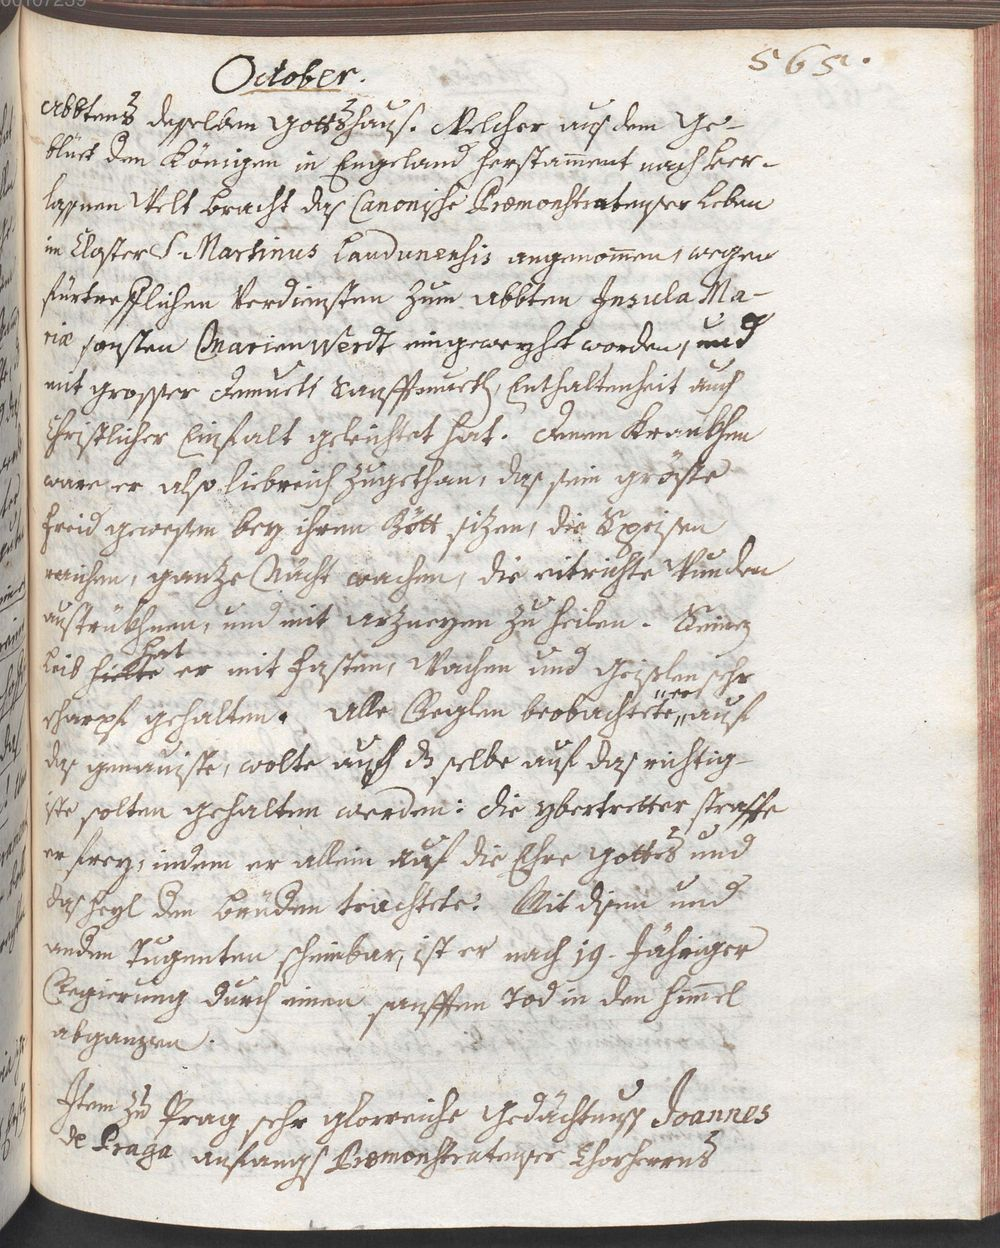 00107239
565.
October.
Abbtens desselben Gottshaus. Welcher aus dem Ge-
blüet den Königen in Engeland herstam̄ent nach ver-
lassnen Welt bracht das Canonische Præmonstratenser Leben
in Closter S. Martinus Laudunensis angenom̄en, wegen
fürtrefflichen Verdiensten zum Abbten Insula Ma-
riæ sonsten Marienwerdt eingeweyht worden, und
mit grosser Demueth Sanfftmueth, Enthaltenheit auch
Christlicher Einfalt geleichtet hat. Denen Krankhen
ware er also liebreich zugethan, das sein gröste
Freid gewesen bey ihrem Bött sitzen, die Speisen
raichen, gantze Nächt wachen, die eitrichte Wunden
austrükhnen, und mit arzneyen zu heilen. Seinen
Leib hielte hat er mit Fasten, Wachen und Geislen sehr
scharpf gehalten. Alle Reglen beobachtete er auf
das genauiste, wolte auch dz selbe auf das richtig-
iste solten gehalten werden: die ybertretter straffte
er frey, indem er allein auf die Ehre Gottes und
das heyl den brüdern trachtete. Mit disen und
andern Tugenten scheinbar, ist er nach 19. Jähriger
Regierung durch einen sanfften Tod in den him̄el
abgangen.
Item zu Prag sehr glorreiche Gedächtnuss Joannes
de Praga anfangs Præmonstratenser Chorherrns